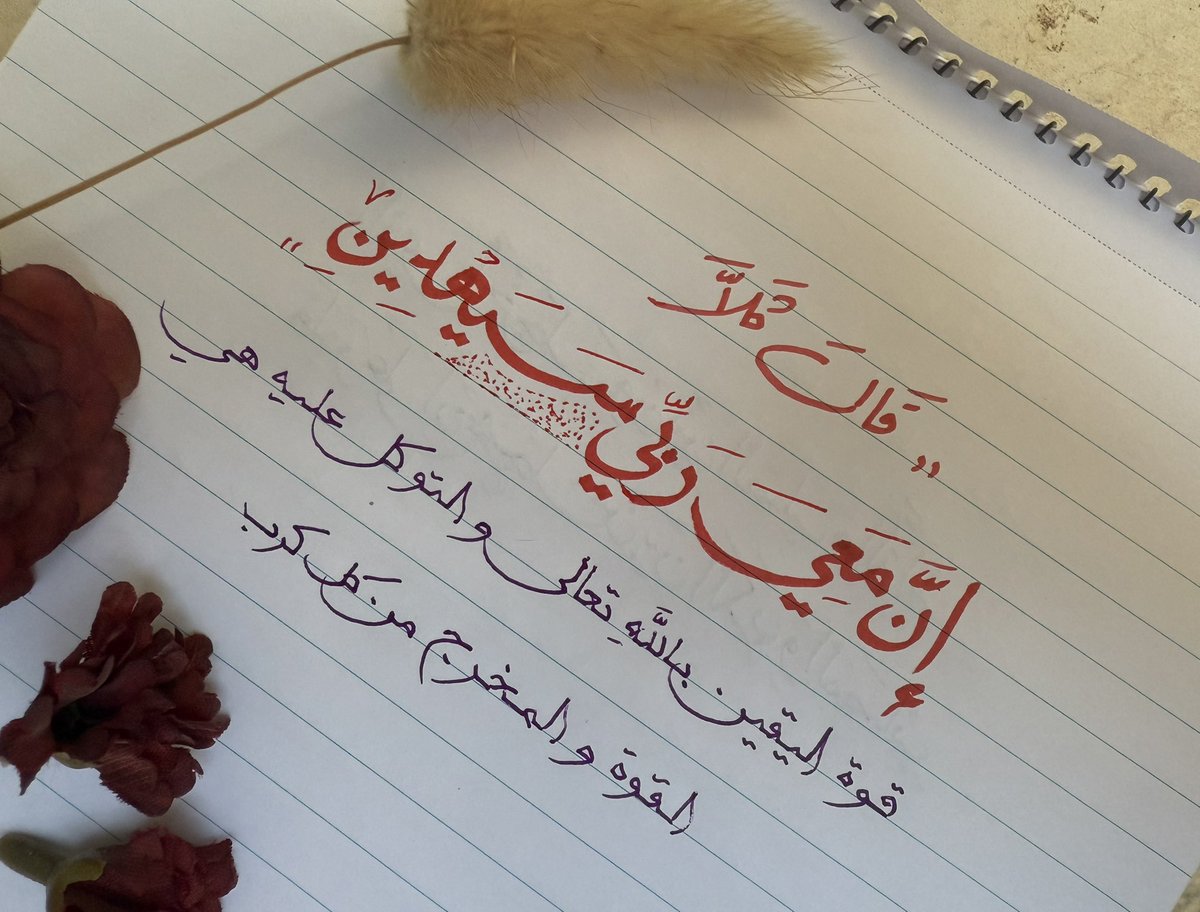 "قَالَ كَلَّا
إِنَّ مَعِيَ رَبِّي سَيَهْدِينِ"
قوة اليقين باللَّهِ تعالى والتوكل عليه هي
القوة والمخرج من كل كرب